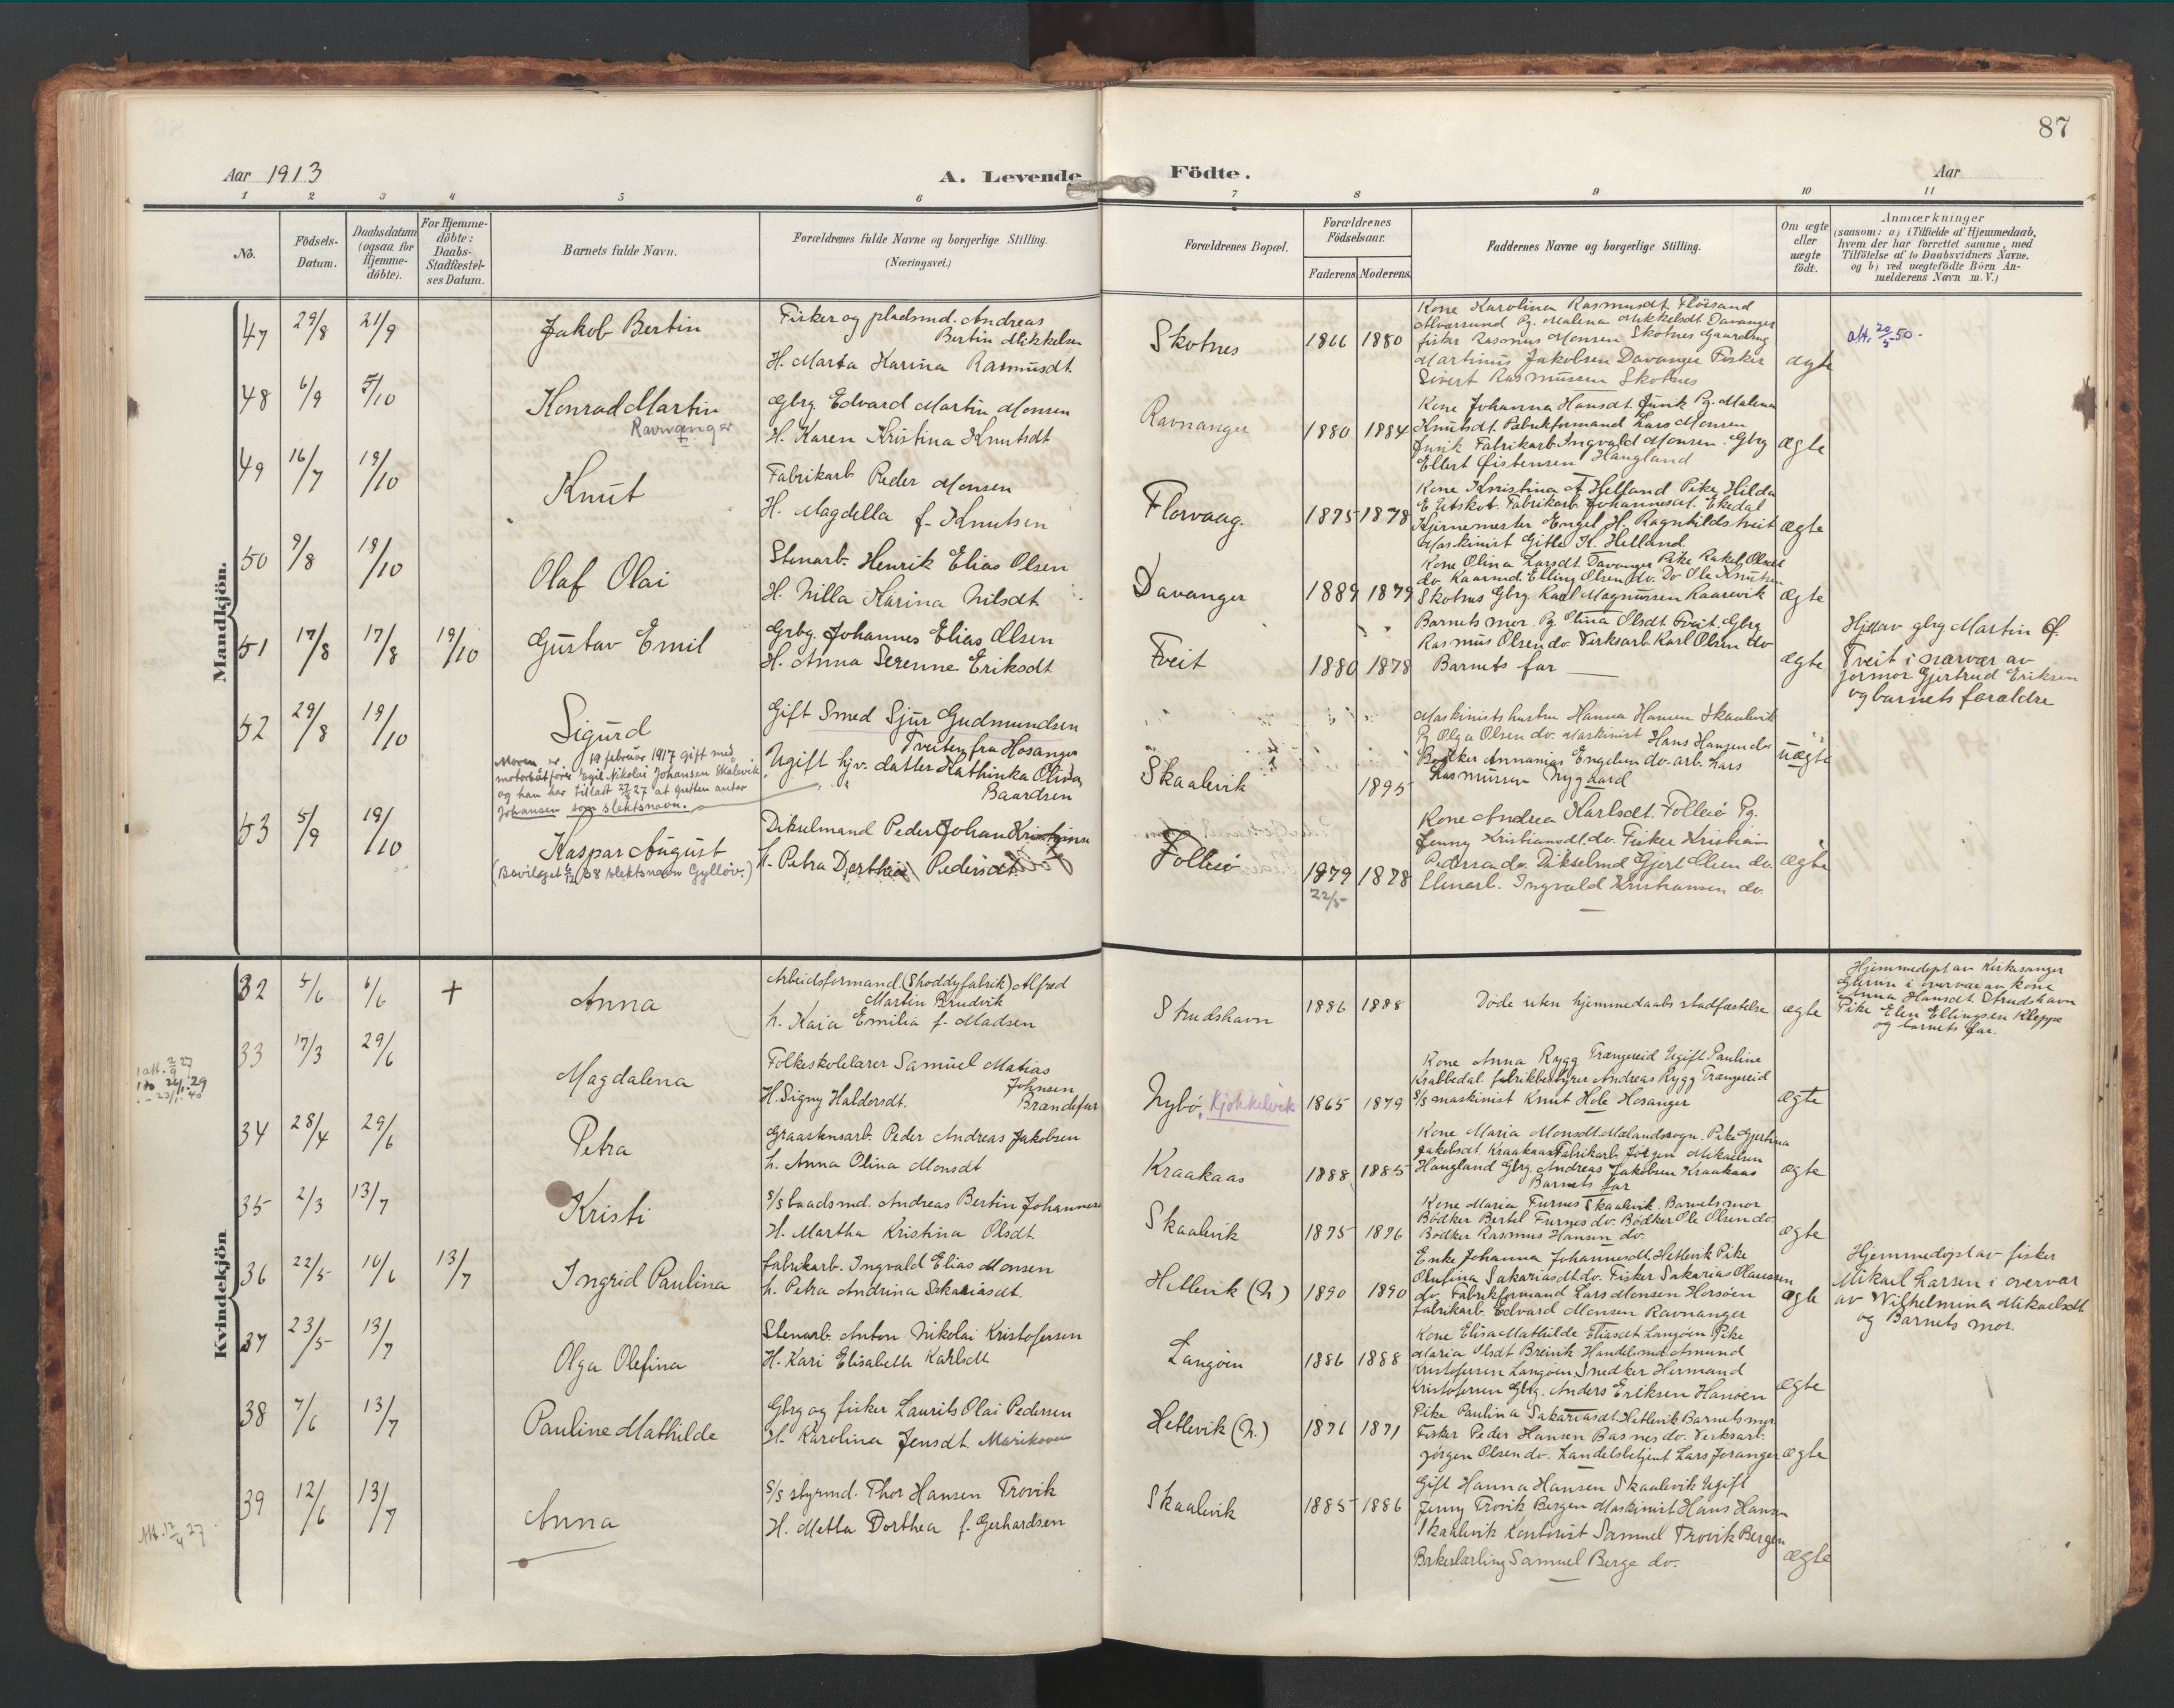 87
Aar 1913
A. Levende Födte.
Aar
1 2 3 4 5 6 7 8 9 10 11
No.
Födsels-Datum.
Daabsdatum (ogsaa for Hjemme-döbte).
For Hjemme-döbte: Daabs-Stadfæstel-ses Datum.
Barnets fulde Navn.
Forældrenes fulde Navne og borgerlige Stilling.
(Næringsvei.)
Forældrenes Bopæl.
Forældrenes Födselsaar.
Faderens. Moderens.
Faddernes Navne og borgerlige Stilling.
Om ægte eller uægte födt.
Anmærkninger
(saasom: a) i Tilfælde af Hjemmedaab,
hvem der har forrettet samme, med
Tilföielse af to Daabsvidners Navne.
og b) ved uægtefödte Börn An-
melderens Navn m. V.)
Mandkjön.
47 29/8 21/9 Jakob Bertin
Fisker og pladsmd. Andreas
Bertin Mikkelsen
H. Marta Karina Rasmusdt.
Skotnes 1866 1880
Kone Karolina Rasmusdt. Flöisand
Alversund Pg. Malena Mikkelsdt Davanger
fisker Rasmus Monsen Skotnes Gaardbrug
Martinus Jakobsen Davanger Fisker
Sivert Rasmussen Skotnes
ægte
att. 20/5 50.
48 6/9 5/10 Konrad Martin
Ravnanger
Gbrg. Edvard Martin Monsen
H. Karen Kristina Knutsdt
Ravnanger 1880 1884
Kone Johanna Hansdt. Juvik Pg. Malena
Knutsdt. Fabrikformand Lars Monsen
Juvik Fabrikarb. Ingvald Monsen. Gbrg
Ellert Øistensen Haugland
ægte
49 16/7 19/10 Knut
Fabrikarb Peder Monsen
H. Magdella f. Knutsen
Florvaag. 1875 1878
Kone Kristina A Helland Pike Hilda
E Utskot. Fabrikarb Johannes Ekedal
Kjernemester Engel H. Ragnhildstveit
Maskinist Gitle K. Helland.
ægte
50 9/8 19/10 Olaf Olai
Stenarb. Henrik Elias Olsen
H. Nilla Karina Nilsdt
Davanger 1889 1879
Kone Olina Larsdt. Davanger Pike Rakel Olsdt
do. Kaarmd. Elling Olsen do. Do Ole Knutsen
Skotnes Gbrg. Karl Magnussen Kaarevik
ægte
51 17/8 17/8 19/10 Gustav Emil
Grbg. Johannes Elias Olsen
H. Anna Serenne Eriksdt
Tveit 1880 1878
Barnets mor. Pg Stina Olsdt Tveit. Gbrg
Rasmus Olsen do. Verksarb. Karl Olsen do
Barnets far
ægte
Hj. av gbrg Martin O.
Tveit i nærvær av
jormor Gjertrud Eriksen
og barnets forældre
52 29/8 19/10 Sigurd
Moren er 19 februar 1917 gift med
motorbåtfører Egil Nikolai Johansen Skålevik
og han har tillatt 27/5 27 at gutten antar
Johansen som slektsnavn.
Gift Smed Sjur Gudmundsen
Tveiten fra Hosanger
Ugift hjv. datter Kathinka Olivia
Baardsen
Skaalevik 1895
Maskinists hustru Hanna Hansen Skaalevik
Pg. Olga Olsen do. Maskinist Hans Hansen do
Bødker Annanias Engelsen do. arb. Lars
Rasmussen Nygaard
uægte
53 5/9 19/10 Kaspar August
(Bevilget 6/12 68 slektsnavn Gylløv.)
Dikselmand Peder Johan Kristiansen
H. Petra Dorthea Pedersdt.
Follesø 1879 1878
22/5
Kone Andrea Karlsdt. Follesø Pg.
Jenny Kristiansdt. do. Fisker Kristian
Pedersen do. Dikselmd Gjert Olsen do.
Stenarb. Ingvald Kristiansen do.
ægte
Kvindekjön
32 5/6 6/6 + Anna
Arbeidsformand (Shoddyfabrik) Alfred
Martin Brudvik
H. Kaia Emilia f. Madsen
Strudshavn 1886 1888
Døde uten hjemmedaabs stadfæstelse
ægte
Hjemmedøpt av Kirkesanger
i overvær av kone
Anna Hansdt. Strudshavn
Pike Elen Ellingsen Kleppe
og barnets far.
33 17/3 29/6 Magdalena
Folkeskolelærer Samuel Matias
Johnsen
H. Signy Haldorsdt. Brandefur
Nybø, Kjøkkelvik 1865 1879
Kone Anna Rygg Trængereid Ugift Pauline
Krabbedal. fabrikbestyrer Andreas Rygg Trængereid
s/s maskinist Knut Hole Hosanger
ægte
34 28/4 29/6 Petra
Graastensarb. Peder Andreas Jakobsen
H. Anna Olina Monsdt
Kraakaas 1888 1885
Kone Maria Monsdt. Mælandssogn. Pike Gjertina
Jakobsdt. Kraakaas Fabrikarb. Jørgen Mikaelsen
Haugland Gbrg. Andreas Jakobsen Kraakaas
Barnets far
ægte
35 2/3 13/7 Kristi
s/s baadsmd. Andreas Bertin Johannesen
H. Martha Kristina Olsdt.
Skaalevik 1875 1876
Kone Maria Furnes Skaalevik. Barnets mor
Bødker Bertel Furnes do. Bødker Ole Olsen do.
Bødker Rasmus Hansen do.
ægte
36 22/5 10/6 13/7 Ingrid Paulina
Fabrikarb. Ingvald Elias Monsen
H. Petra Andrina Sakariasdt.
Hetlevik (N.) 1890 1890
Enke Johanna Johannesdt. Hetlevik Pike
Olufina Sakariasdt. do. Fisker Sakarias Olaussen
do. Fabrikformand Lars Monsen Horsøen
Fabrikarb. Edvard Monsen Ravnanger
ægte
Hjemmedøpt av fisker
Mikael Larsen i overvær
av Vilhelmina Mikaelsdt
og Barnets mor.
37 23/5 13/7 Olga Olefina
Stenarb. Anton Nikolai Kristofersen
H. Kari Elisabeth Karlsdt
Langøen 1886 1888
Kone Elisa Mathilde Eliasdt Langøen Pike
Maria Olsdt Breivik Handelsmd Amund
Kristofersen Langøen, Snedker Hermand
Kristofersen Gbrg. Anders Eriksen Hanøen
ægte
38 7/6 13/7 Pauline Mathilde
Gbrg og fisker Laurits Olai Pedersen
H. Karolina Jensdt. Marikoven
Hetlevik (N.) 1876 1871
Pike Paulina Sakariasdt. Hetlevik Barnets mor
Fisker Peder Hansen Basnes do. Verksarb.
Jørgen Olsen do. Handelsbetjent Lars Joranger
ægte
39 12/6 13/7 Anna
s/s styrmd. Thor Hansen Trovik
H. Metta Dorthea f. Gerhardsen
Skaalevik 1885 1886
Gift Hanna Hansen Skaalevik Ugift
Jenny Trovik Bergen Maskinist Hans Hansen
Skaalevik Kontorist Samuel Trovik Bergen
Bakerlærling Samuel Berge do.
ægte
1 att. 2/9 27
Att. 12/4 27